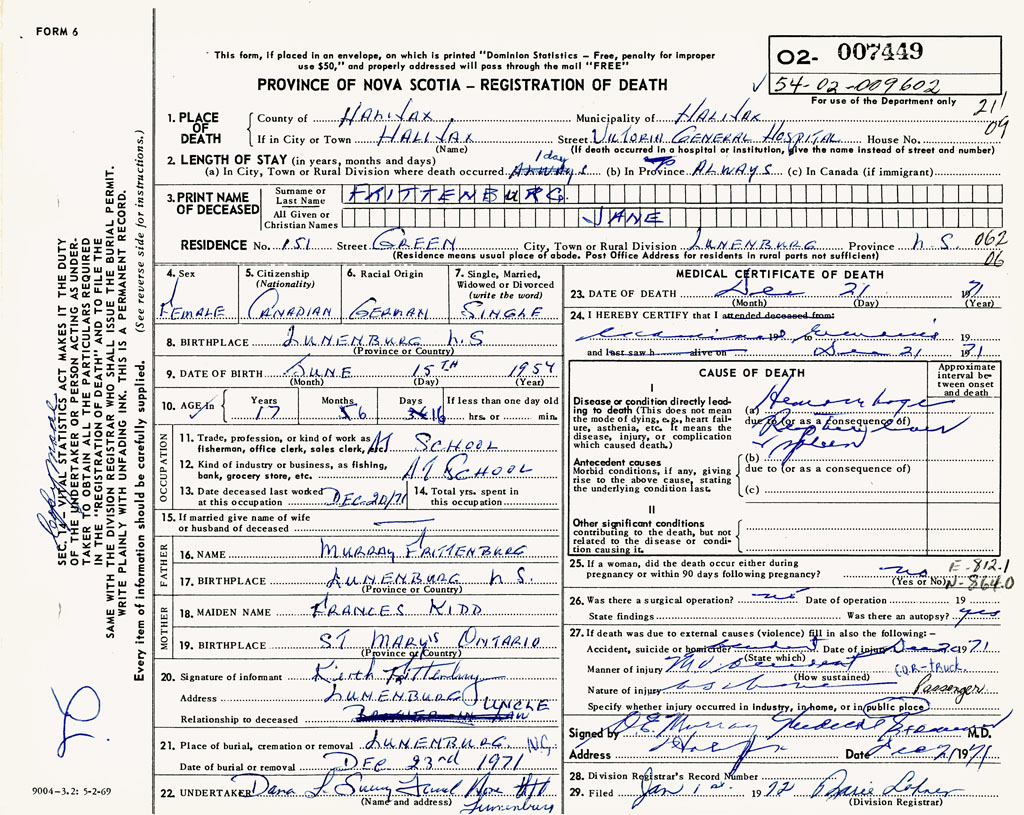 FORM 6
This form, if placed in an envelope, on which is printed "Dominion Statistics – Free, penalty for improper
use $50," and properly addressed will pass through the mail "FREE"
PROVINCE OF NOVA SCOTIA – REGISTRATION OF DEATH
02- 007449
54-02-009602
For use of the Department only
211
09
1. PLACE OF DEATH
County of HALIFAX Municipality of HALIFAX
If in City or Town HALIFAX Street VICTORIA GENERAL HOSPITAL House No.
(Name) (If death occurred in a hospital or institution, give the name instead of street and number)
2. LENGTH OF STAY (in years, months and days) 1 day
(a) In City, Town or Rural Division where death occurred ALWAYS (b) In Province ALWAYS (c) In Canada (if immigrant)
3. PRINT NAME OF DECEASED
Surname or Last Name FRITTENBURG
All Given or Christian Names JANE
RESIDENCE No. 151 Street GREEN City, Town or Rural Division LUNENBURG Province N.S. 062
(Residence means usual place of abode. Post Office Address for residents in rural parts not sufficient) 06
4. Sex
FEMALE
5. Citizenship (Nationality)
CANADIAN
6. Racial Origin
GERMAN
7. Single, Married, Widowed or Divorced (write the word)
SINGLE
8. BIRTHPLACE LUNENBURG N.S
(Province or Country)
9. DATE OF BIRTH JUNE 15TH 1954
(Month) (Day) (Year)
10. AGE in Years Months Days If less than one day old
17 6 16 hrs. or min.
OCCUPATION
11. Trade, profession, or kind of work as fisherman, office clerk, sales clerk, etc. AT SCHOOL
12. Kind of industry or business, as fishing, bank, grocery store, etc. AT SCHOOL
13. Date deceased last worked at this occupation DEC. 20/71
14. Total yrs. spent in this occupation
15. If married give name of wife or husband of deceased
FATHER
16. NAME MURRAY FRITTENBURG
17. BIRTHPLACE LUNENBURG N.S.
(Province or Country)
MOTHER
18. MAIDEN NAME FRANCES KIDD
19. BIRTHPLACE ST MARY'S ONTARIO
(Province or Country)
20. Signature of informant Keith Frittenburg
Address LUNENBURG
Relationship to deceased BROTHER IN LAW UNCLE
21. Place of burial, cremation or removal LUNENBURG N.S.
Date of burial or removal DEC 23rd 1971
22. UNDERTAKER Dana L. Sweeny Funeral Home
(Name and address) Lunenburg
MEDICAL CERTIFICATE OF DEATH
23. DATE OF DEATH Dec 21 1971
(Month) (Day) (Year)
24. I HEREBY CERTIFY that I attended deceased from:
19 to 19
and last saw h alive on Dec 21 1971
CAUSE OF DEATH
Approximate interval between onset and death
I
Disease or condition directly leading to death (This does not mean the mode of dying, e.g., heart failure, asthenia, etc. It means the disease, injury, or complication which caused death.)
(a) Hemorrhage
due to (or as a consequence of)
Ruptured liver
Spleen
(b)
Antecedent causes
Morbid conditions, if any, giving rise to the above cause, stating the underlying condition last.
due to (or as a consequence of)
(c)
II
Other significant conditions contributing to the death, but not related to the disease or condition causing it.
25. If a woman, did the death occur either during pregnancy or within 90 days following pregnancy? no
(Yes or No)
E-812.1
N-864.0
26. Was there a surgical operation? no Date of operation 19
State findings Was there an autopsy? yes
27. If death was due to external causes (violence) fill in also the following:–
Accident, suicide or homicide accident Date of injury Dec 20 1971
(State which)
Manner of injury car-truck
(How sustained)
Nature of injury Passenger
Specify whether injury occurred in industry, in home, or in public place
Signed by M.D.
Address Date Dec 21 1971
28. Division Registrar's Record Number
29. Filed Jan 1st 1972
(Division Registrar)
SEC. 14 – VITAL STATISTICS ACT MAKES IT THE DUTY
OF THE UNDERTAKER OR PERSON ACTING AS UNDER-
TAKER TO OBTAIN ALL THE PARTICULARS REQUIRED
IN THE "REGISTRATION OF DEATH" AND TO FILE THE
SAME WITH THE DIVISION REGISTRAR WHO SHALL ISSUE THE BURIAL PERMIT.
WRITE PLAINLY WITH UNFADING INK. THIS IS A PERMANENT RECORD.
Every item of information should be carefully supplied. (See reverse side for instructions.)
9004-3.2: 5-2-69